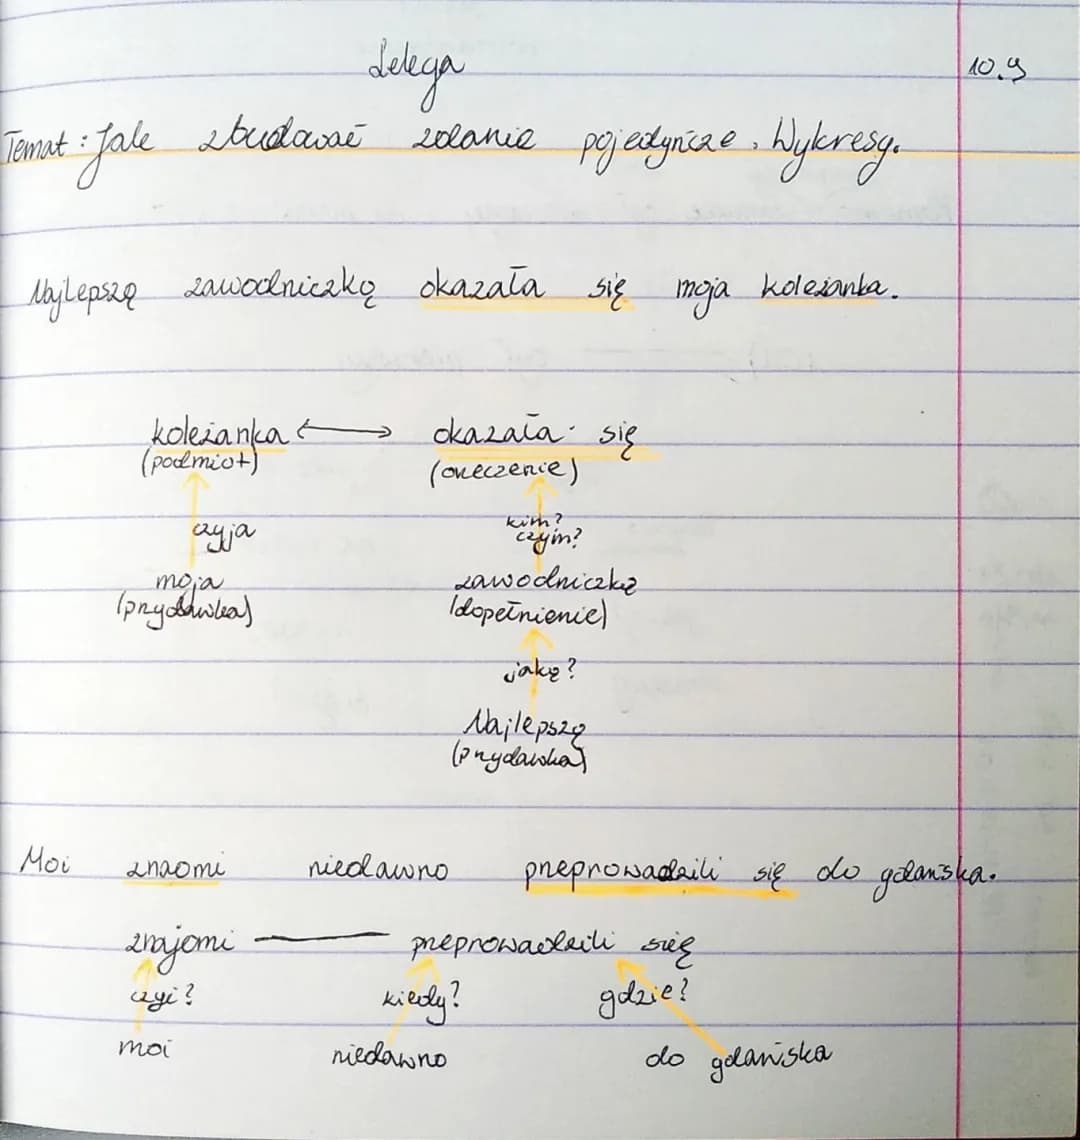 Lekcja 10.9
Temat: Jak zbudować zdanie pojedyncze. Wykresy.
Najlepszą zawodniczką okazała się moja koleżanka.
koleżanka ⟷ okazała się
(podmiot) (orzeczenie)
czyja kim?
czym?
moja zawodniczką
(przydawka) (dopełnienie)
jaką?
Najlepszą
(przydawka)
Moi znaomi niedawno przeprowadzili się do gdańska.
znajomi — przeprowadzili się
czyi? kiedy? gdzie?
moi niedawno do gdańska